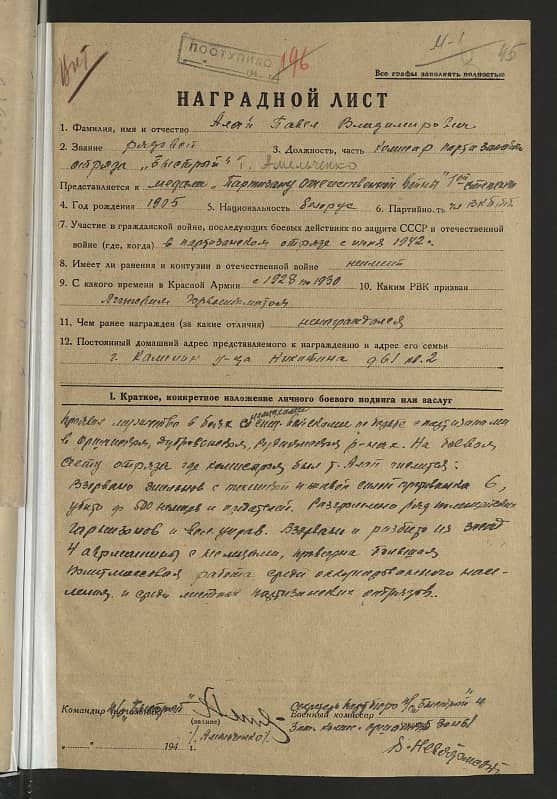 Инт
ПОСТУПИЛО
196
М-1
45
Все графы заполнять полностью
НАГРАДНОЙ ЛИСТ
1. Фамилия, имя и отчество Алай Павел Владимирович
2. Звание рядовой 3. Должность, часть комиссар
отряда „Быстрый" т. Амельченко
Представляется к медали „Партизану отечественной войны" 1ой степени
4. Год рождения 1905 5. Национальность белорус 6. Партийность
7. Участие в гражданской войне, последующих боевых действиях по защите СССР и отечественной
войне (где, когда) в партизанском отряде с июня 1942 г.
8. Имеет ли ранения и контузии в отечественной войне неимеет
9. С какого времени в Красной Армии с 1928 по 1930 10. Каким РВК призван
11. Чем ранее награжден (за какие отличия) ненаграждался
12. Постоянный домашний адрес представляемого к награждению и адрес его семьи
г. у-ца Никитина д 61 кв. 2
I. Краткое, конкретное изложение личного боевого подвига или заслуг
Проявил мужество в боях с немецкими войсками по борьбе с партизанами
в Оршанском, Дубровенском, Руднянском р-нах. На боевом
счету отряда где комиссаром был т. Алай числится:
Взорвано эшелонов с техникой и живой силой противника 6,
убито до 500 немцев и предателей. Разгромлено ряд полицейских
гарнизонов и вол. управ. Взорвано и разбито из засад
4 автомашины с немцами, проведена большая
работа среди оккупированного насе-
ления и среди партизанских отрядов.
Командир
(звание)
Военный комиссар
/Амельченко/
секретарь партбюро „Быстрый" и
зоны
„......" 194 г.